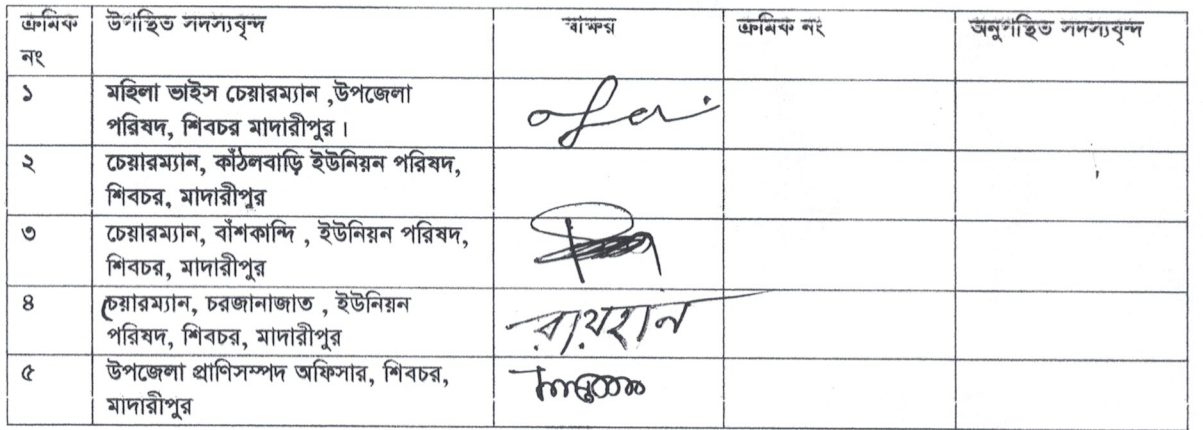 ক্রমিক নং
উপস্থিত সদস্যবৃন্দ
স্বাক্ষর
ক্রমিক নং
অনুপস্থিত সদস্যবৃন্দ
১
মহিলা ভাইস চেয়ারম্যান ,উপজেলা
পরিষদ, শিবচর মাদারীপুর ।
২
চেয়ারম্যান, কাঁঠলবাড়ি ইউনিয়ন পরিষদ,
শিবচর, মাদারীপুর
৩
চেয়ারম্যান, বাঁশকান্দি , ইউনিয়ন পরিষদ,
শিবচর, মাদারীপুর
৪
চেয়ারম্যান, চরজানাজাত , ইউনিয়ন
পরিষদ, শিবচর, মাদারীপুর
রায়হান
৫
উপজেলা প্রাণিসম্পদ অফিসার, শিবচর,
মাদারীপুর